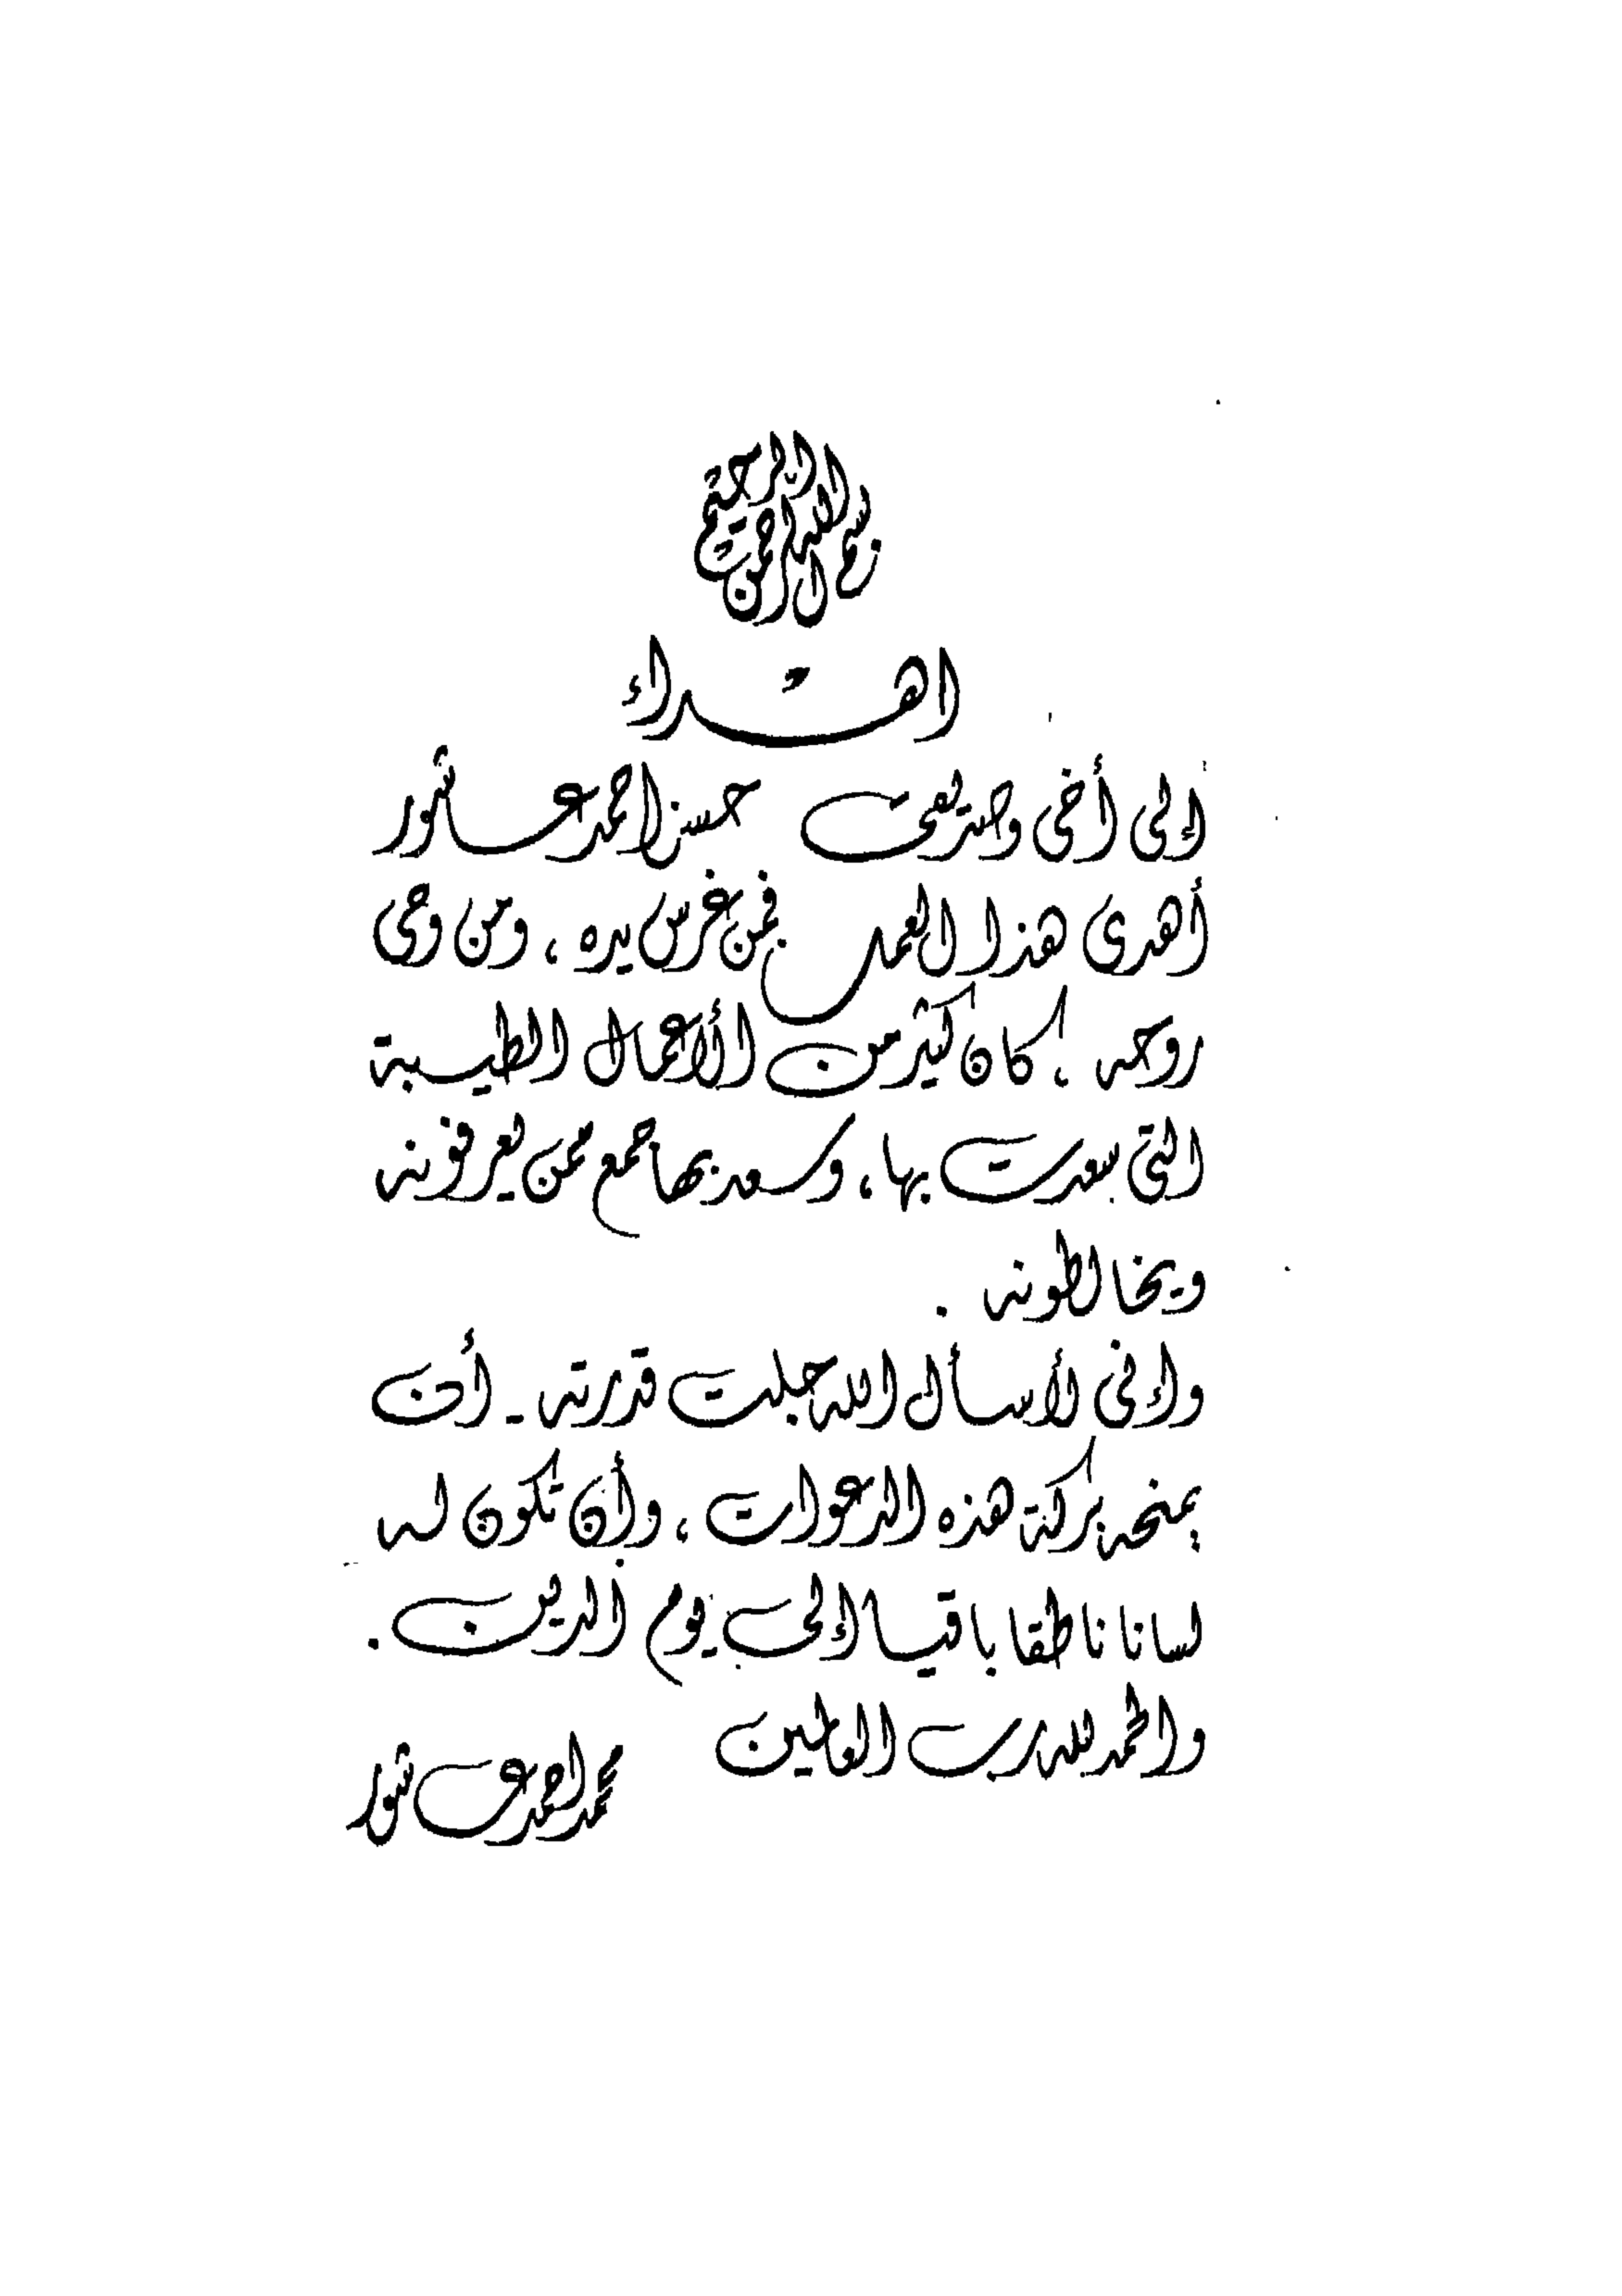 بسم الله الرحمن الرحيم
اهداء
إلى أخى وصديقى حسن احمد عاشور
أهدى هذا العمل فمن غرس يده ، ومن وحى
روحه ؛ كان كثير من الأعمال الطيبة
التى سعدت بها ، وسعد بها جمع ممن يعرفونه
ويخالطونه .
وإنى لأسأل الله جلت قدرته - أن
يمنحه بركة هذه الدعوات ، وأن تكون له
لسانا ناطقا باقيا إلى يوم الدين .
والحمد لله رب العالمين
محمد احمد عاشور